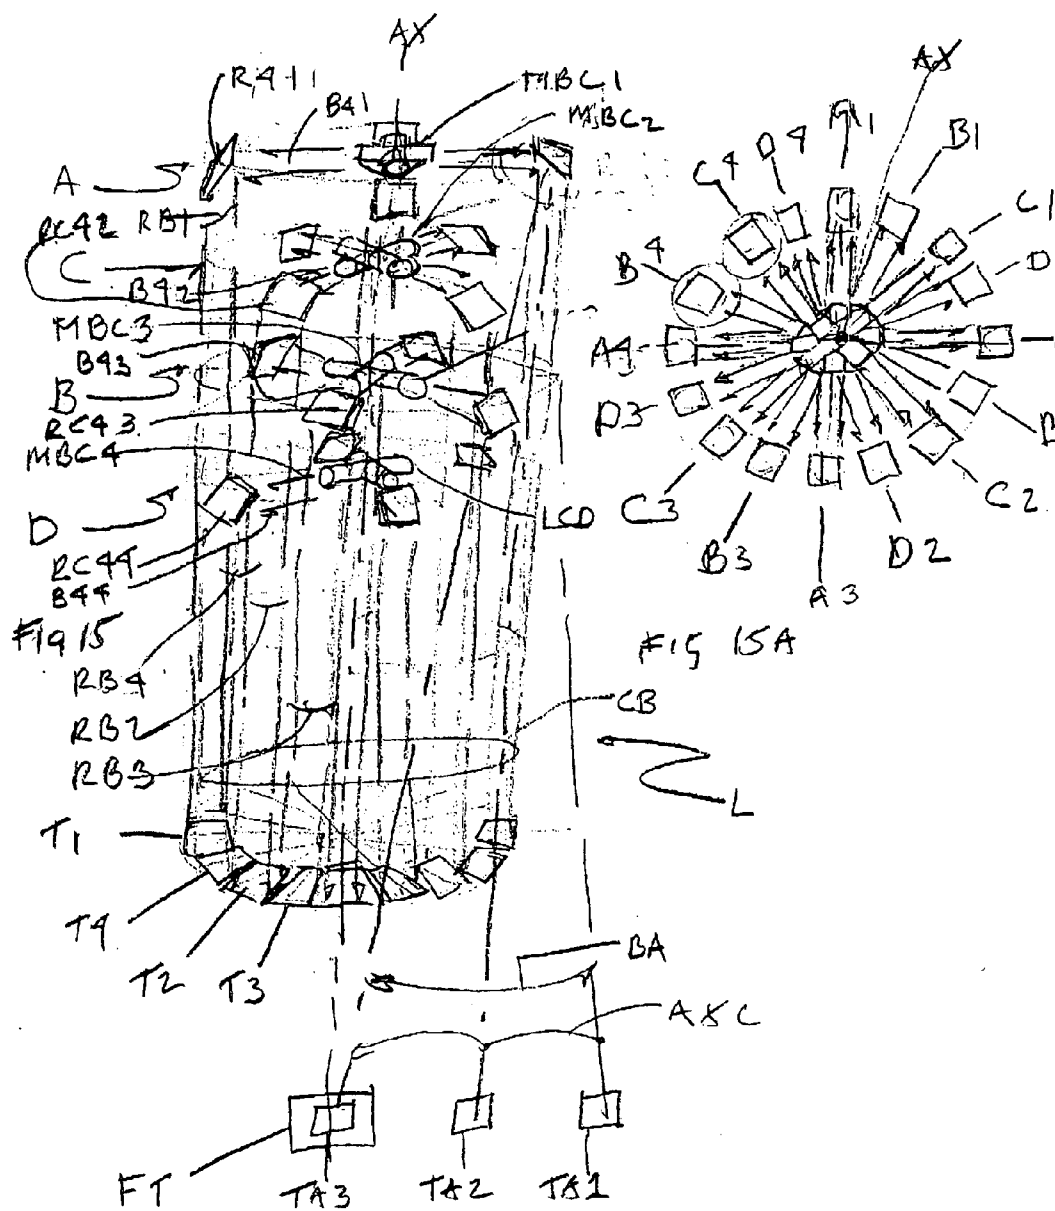 AX
R411
B41
MBC1
MBC2
A
RC42
RB1
C
B42
MBC3
B43
B
RC43
MBC4
D
RC44
B44
LCD
FIG 15
RB4
RB2
RB3
CB
L
T1
T4
T2
T3
BA
AXC
FT
TA3
TA2
TA1
AX
A1
B1
D4
C4
C1
B4
D
A4
D3
C3
C2
B3
D2
A3
FIG 15A